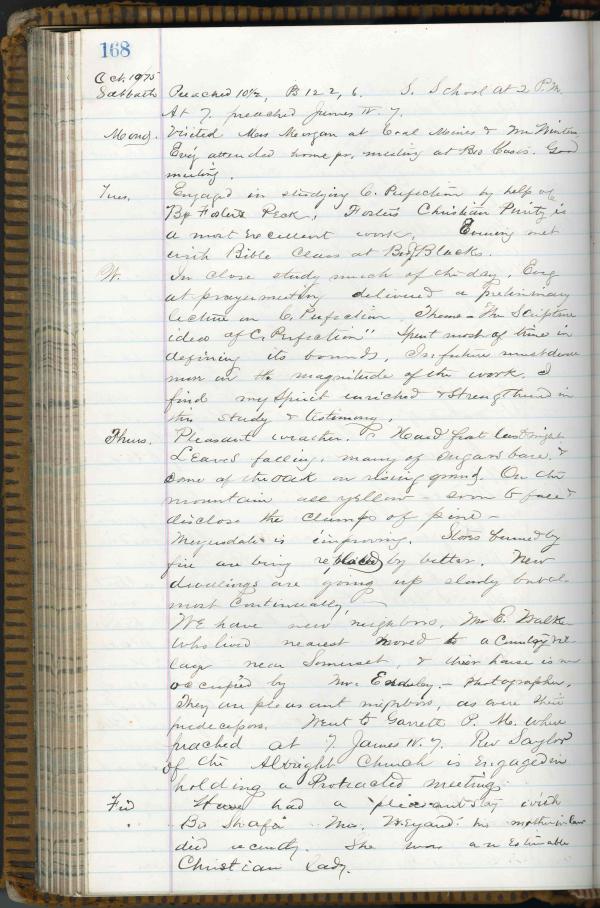 168
Oct. 10/75
Sabbath Preached 10½, P 122, 6. S. School at 2 P.M.
At 7. preached James IV. 7.
Mond. Visited Mrs Morgan at Coal Mines & Mr
Ev'g attended home pr. meeting at Bro Good
meeting.
Tues. Engaged in studying C. Perfection by help of
Foster's Peck. Foster's Christian Purity is
a most excellent work. Evening met
with Bible Class at Bro Blacks.
W. In close study much of the day. Evg
at prayermeeting delivered a preliminary
lecture on C. Perfection. Theme - The Scripture
idea of C. Perfection" Spent most of time in
defining its bounds. In future must dwell
more on the magnitude of the work. I
find my Spirit enriched & strengthened in
this study & testimony.
Thurs. Pleasant weather. Hard frost last night
Leaves falling. many of sugars bare. &
some of the oak on rising ground. On the
mountain all yellow - soon to fade &
disclose the clumps of pine -
Meyersdale is improving. Stores burned by
fire are being replaced by better. New
dwellings are going up slowly but al-
most continually,
We have new neighbors. Mr E. Walker
who lived nearest moved to a country vil
lage near Somerset, & their house is now
occupied by Mr. - Photographer.
They are pleasant neighbors, as were their
predecessors. Went to Garrett P. M. where
preached at 7. James IV. 7. Rev Saylor
of the Albright Church is engaged in
holding a Protracted meeting.
Fri. Have had a pleasant day with
Bro Mrs. Weyand his mother in law
died recently. She was an estimable
Christian Lady.